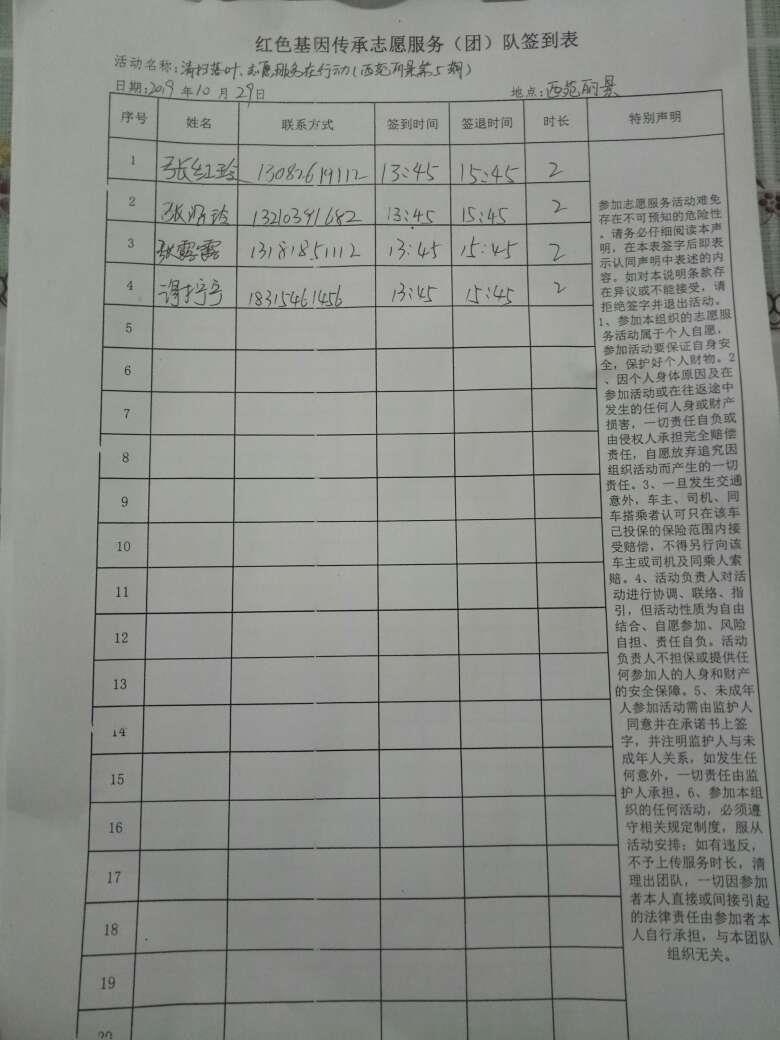 红色基因传承志愿服务（团）队签到表
活动名称：清扫落叶、志愿服务在行动（西苑丽景第5期）
日期：2019年10月29日 地点：西苑丽景
序号 姓名 联系方式 签到时间 签退时间 时长 特别声明
1 张红玲 13082619112 13:45 15:45 2
2 张 玲 13210391682 13:45 15:45 2
3 张露露 13181851112 13:45 15:45 2
4 谢宁宁 18315461456 13:45 15:45 2
5
6
7
8
9
10
11
12
13
14
15
16
17
18
19
20
参加志愿服务活动难免
存在不可预知的危险性
，请务必仔细阅读本声
明，在本表签字后即表
示认同声明中表述的内
容。如对本说明条款存
在异议或不能接受，请
拒绝签字并退出活动。
1、参加本组织的志愿服
务活动属于个人自愿，
参加活动要保证自身安
全，保护好个人财物。2
、因个人身体原因及在
参加活动或在往返途中
发生的任何人身或财产
损害，一切责任自负或
由侵权人承担完全赔偿
责任，自愿放弃追究因
组织活动而产生的一切
责任。3、一旦发生交通
意外，车主、司机、同
车搭乘者认可只在该车
已投保的保险范围内接
受赔偿，不得另行向该
车主或司机及同乘人索
赔。4、活动负责人对活
动进行协调、联络、指
引，但活动性质为自由
结合、自愿参加、风险
自担、责任自负。活动
负责人不担保或提供任
何参加人的人身和财产
的安全保障。5、未成年
人参加活动需由监护人
同意并在承诺书上签
字，并注明监护人与未
成年人关系，如发生任
何意外，一切责任由监
护人承担。6、参加本组
织的任何活动，必须遵
守相关规定制度，服从
活动安排；如有违反，
不予上传服务时长，清
理出团队，一切因参加
者本人直接或间接引起
的法律责任由参加者本
人自行承担，与本团队
组织无关。